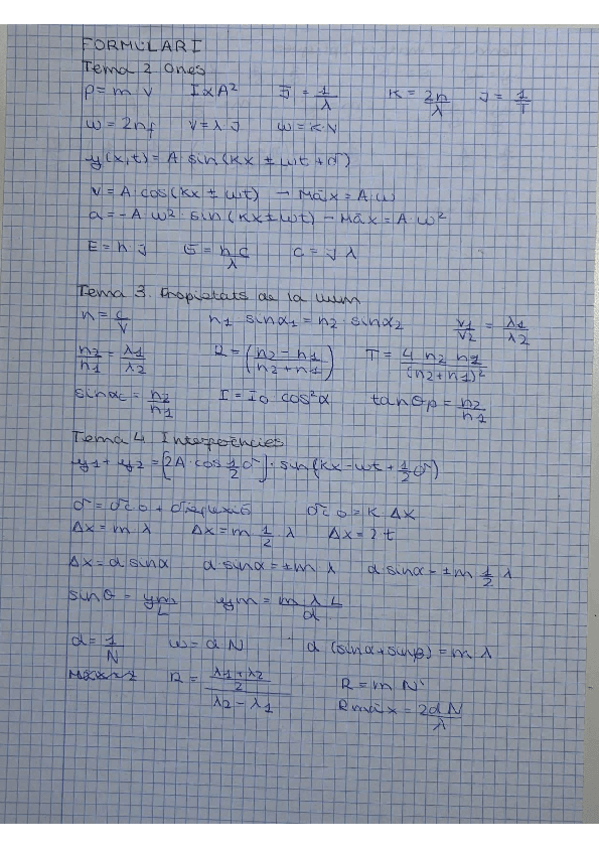 FORMULARI
Tema 2 Ones
p = m v   I ∝ A²   J̄ = 1/λ   K = 2π/λ   J = 1/T
w = 2πf   V = λ J   w = K·V
y(x,t) = A sin(Kx ± wt + σ)
V = A cos(Kx ± wt) → Màx = A·w
a = -A·w²·sin(Kx ± wt) → Màx = A·w²
E = h·J   E = h·C/λ   C = J·λ
Tema 3. Propietats de la llum
n = C/V   n1·sinα1 = n2·sinα2   V1/V2 = λ1/λ2
n2/n1 = λ1/λ2   R = (n2 - n1/n2 + n1)   T = 4 n2 n1/(n2+n1)²
sinαc = n2/n1   I = I0 cos²α   tanθp = n2/n1
Tema 4. Interferències
y1 + y2 = [2A·cos 1/2 σ]·sin(Kx - wt + 1/2 σ)
σ = σco + σreflexió   σco = K Δx
Δx = m·λ   Δx = m 1/2·λ   Δx = 2t
Δx = d sinα   d·sinα = ±m λ   d sinα = ±m 1/2 λ
sinθ = ym/L   ym = m λ L/d
d = 1/N   w = d N   d (sinα + sinβ) = m λ
R = (λ1 + λ2/2)/(λ2 - λ1)   R = m N
Rmàx = 2dN/λ